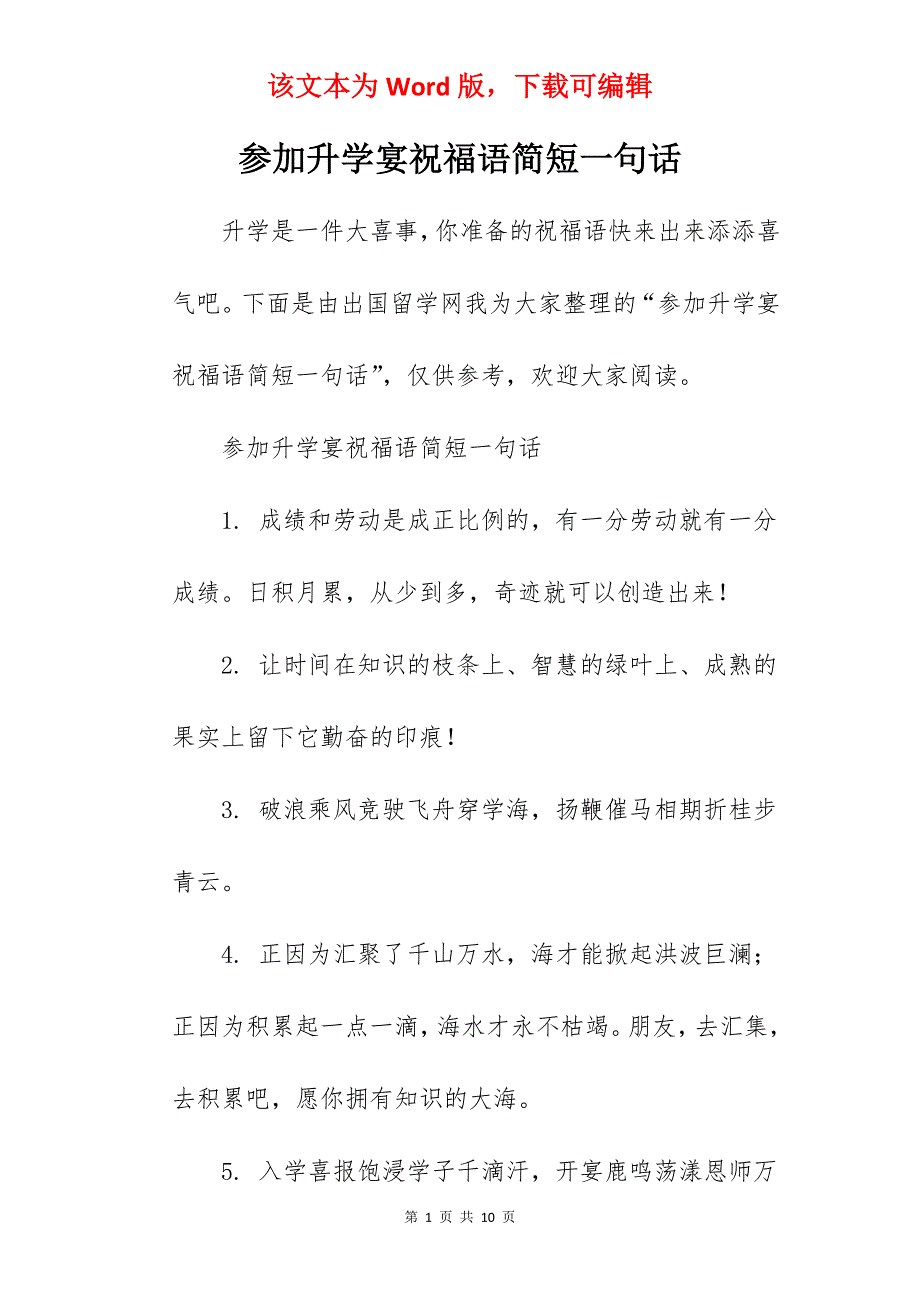 该文本为 Word 版，下载可编辑
参加升学宴祝福语简短一句话
升学是一件大喜事，你准备的祝福语快来出来添添喜
气吧。下面是由出国留学网我为大家整理的“参加升学宴
祝福语简短一句话”，仅供参考，欢迎大家阅读。
参加升学宴祝福语简短一句话
1. 成绩和劳动是成正比例的，有一分劳动就有一分
成绩。日积月累，从少到多，奇迹就可以创造出来！
2. 让时间在知识的枝条上、智慧的绿叶上、成熟的
果实上留下它勤奋的印痕！
3. 破浪乘风竞驶飞舟穿学海，扬鞭催马相期折桂步
青云。
4. 正因为汇聚了千山万水，海才能掀起洪波巨澜；
正因为积累起一点一滴，海水才永不枯竭。朋友，去汇集，
去积累吧，愿你拥有知识的大海。
5. 入学喜报饱浸学子千滴汗，开宴鹿鸣荡漾恩师万
第 1 页 共 10 页